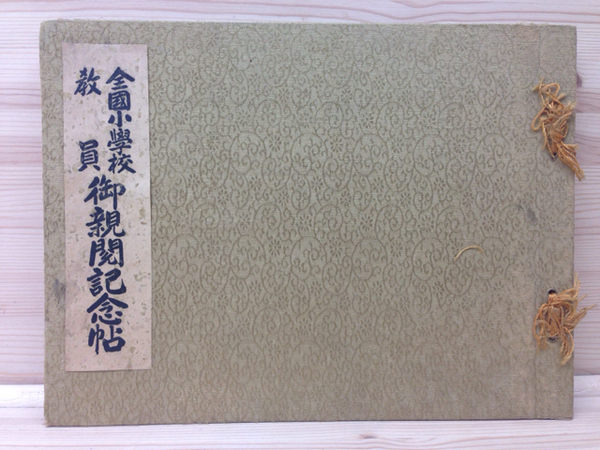 全國小學校
教員
御親閲記念帖